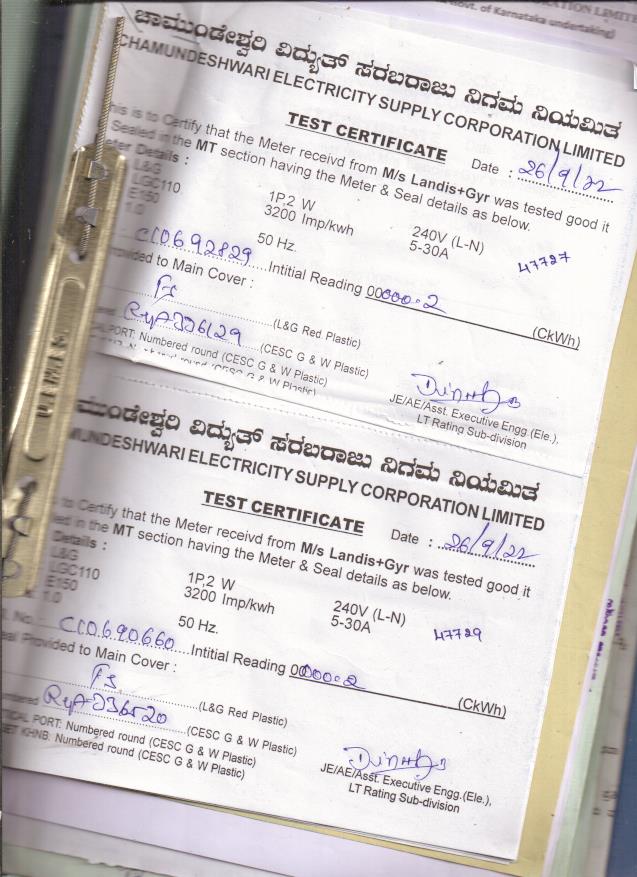 ORATION LIMIT
Govt. of Karnataka undertaking)
ಚಾಮುಂಡೇಶ್ವರಿ ವಿದ್ಯುತ್ ಸರಬರಾಜು ನಿಗಮ ನಿಯಮಿತ
CHAMUNDESHWARI ELECTRICITY SUPPLY CORPORATION LIMITED
TEST CERTIFICATE
Date : 26/9/22
his is to Certify that the Meter receivd from M/s Landis+Gyr was tested good it
Sealed in the MT section having the Meter & Seal details as below.
eter Details :
L&G
LGC110 1P,2 W 240V (L-N)
E150 3200 Imp/kwh 5-30A
1.0 50 Hz. 47727
CC0692829 Intitial Reading 00000.2 (CkWh)
ovided to Main Cover :
(L&G Red Plastic)
(CESC G & W Plastic)
CAL PORT: Numbered round (CESC G & W Plastic)
round (CESC G & W Plastic)
JE/AE/Asst. Executive Engg.(Ele.),
LT Rating Sub-division
ಮುಂಡೇಶ್ವರಿ ವಿದ್ಯುತ್ ಸರಬರಾಜು ನಿಗಮ ನಿಯಮಿತ
MUNDESHWARI ELECTRICITY SUPPLY CORPORATION LIMITED
TEST CERTIFICATE
Date : 26/9/22
to Certify that the Meter receivd from M/s Landis+Gyr was tested good it
ed in the MT section having the Meter & Seal details as below.
Details :
L&G
LGC110 1P,2 W 240V (L-N)
E150 3200 Imp/kwh 5-30A
1.0 50 Hz. 47729
No. CC0690660 Intitial Reading 00000.2 (CkWh)
eal Provided to Main Cover :
(L&G Red Plastic)
umbered (CESC G & W Plastic)
TICAL PORT: Numbered round (CESC G & W Plastic)
SET KHNB: Numbered round (CESC G & W Plastic)
JE/AE/Asst. Executive Engg.(Ele.),
LT Rating Sub-division